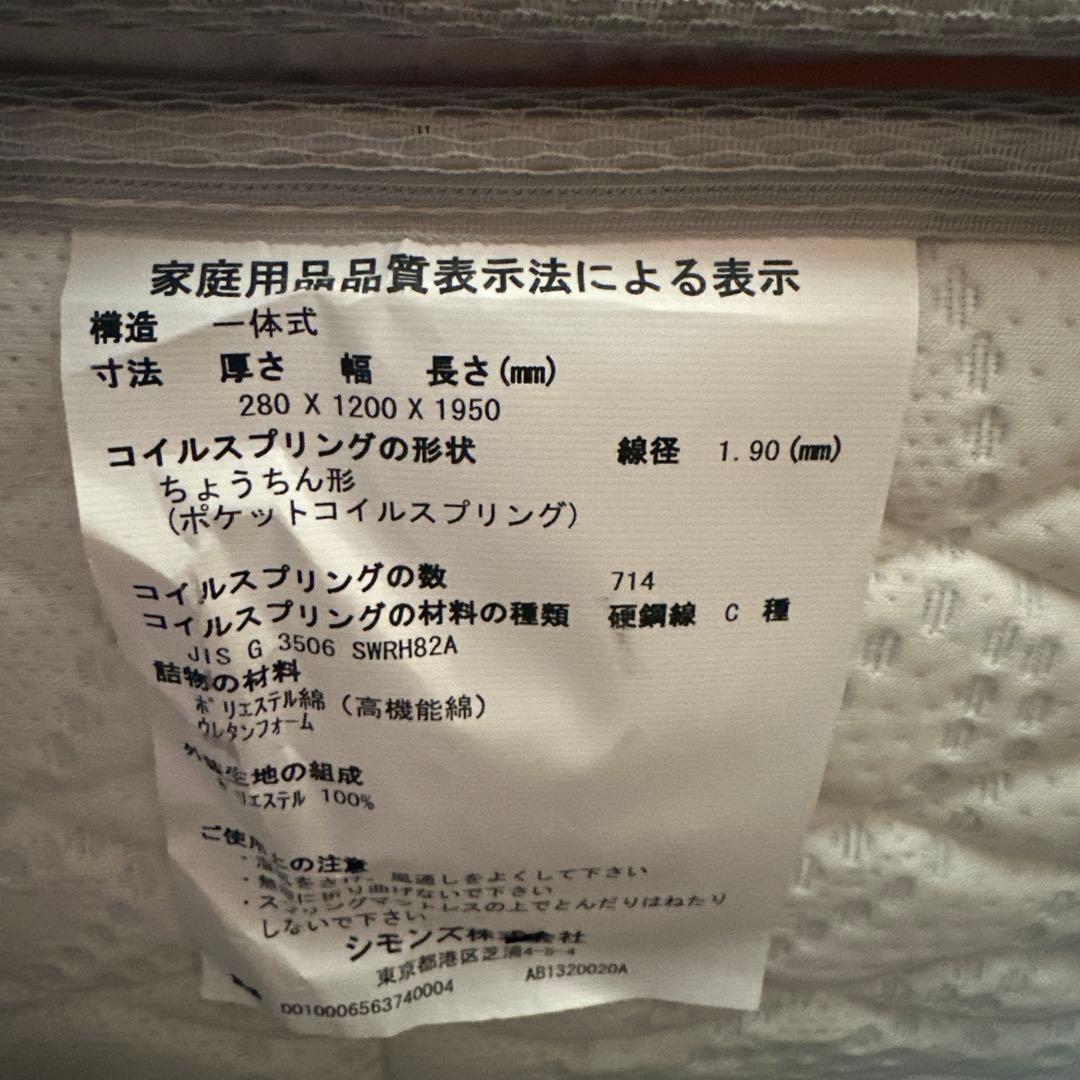 家庭用品品質表示法による表示
構造 一体式
寸法 厚さ 幅 長さ(mm)
280 X 1200 X 1950
コイルスプリングの形状 線径 1.90(mm)
ちょうちん形
(ポケットコイルスプリング)
コイルスプリングの数 714
コイルスプリングの材料の種類 硬鋼線 C 種
JIS G 3506 SWRH82A
詰物の材料
ポリエステル綿 (高機能綿)
ウレタンフォーム
生地の組成
リエステル 100%
ご使用上の注意
・をさけ、風通しをよくして下さい
・に折り曲げないで下さい
・スプリングマットレスの上でとんだりはねたり
しないで下さい
シモンズ株式会社
東京都港区芝浦4-
AB1320020A
0010006563740004